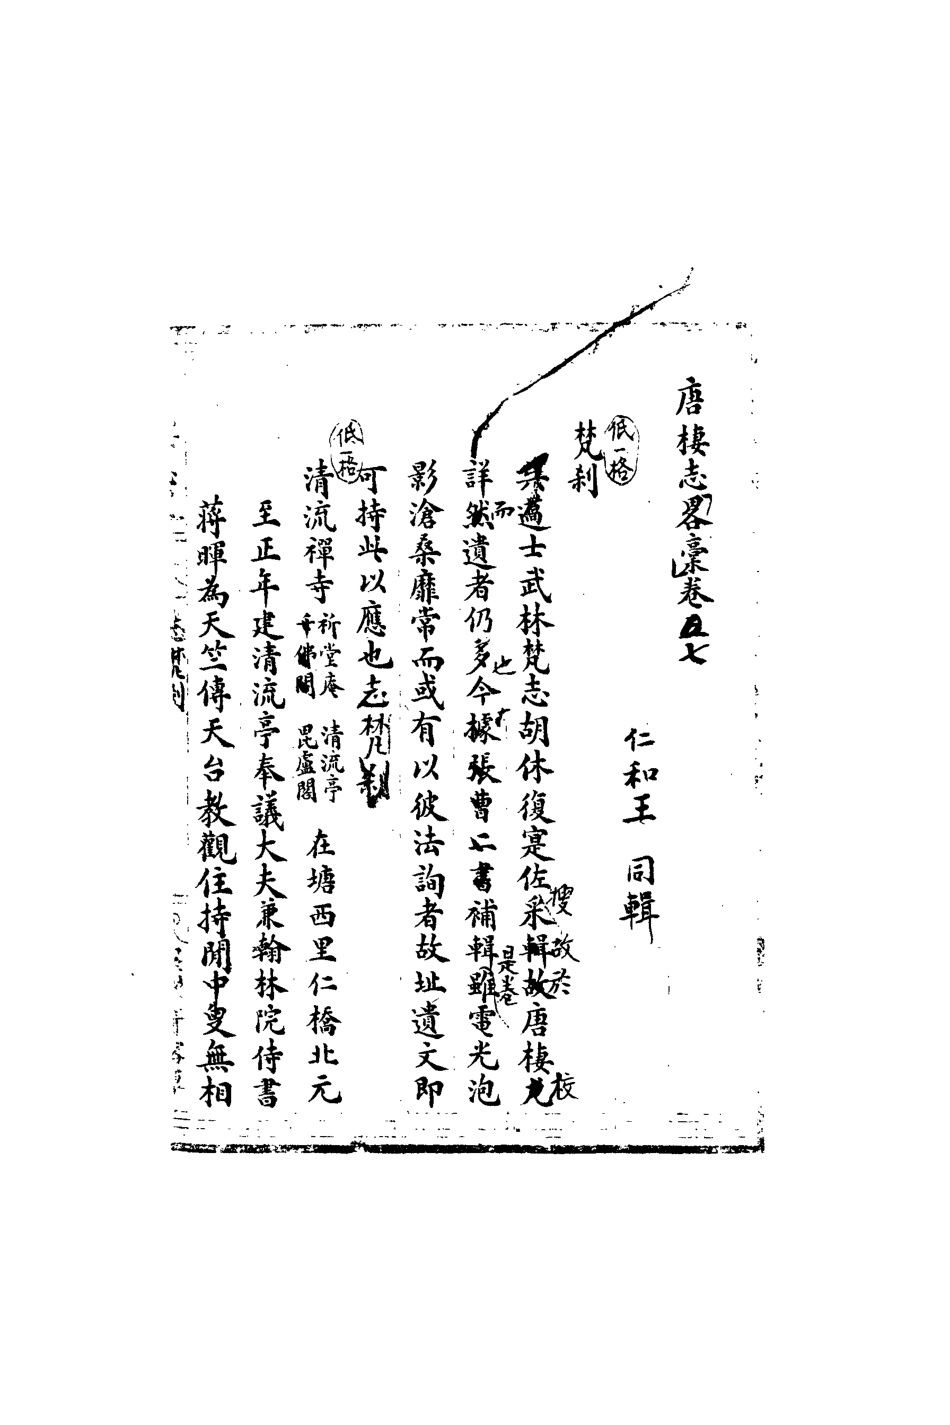 唐棲志畧稾卷五七
仁和王 同輯
低一格
梵刹
吳薖士武林梵志胡休復寔佐采輯故唐棲尤
搜 故於 校
詳然遺者仍多今據張曹二書補輯雖電光泡
而 也 是卷
影滄桑靡常而或有以彼法詢者故址遺文即
可持此以應也志梵刹
低一格
清流禪寺 祈堂庵 清流亭 千佛閣 毘盧閣 在塘西里仁橋北元
至正年建清流亭奉議大夫兼翰林院侍書
蔣暉為天竺傳天台教觀住持聞中叟無相